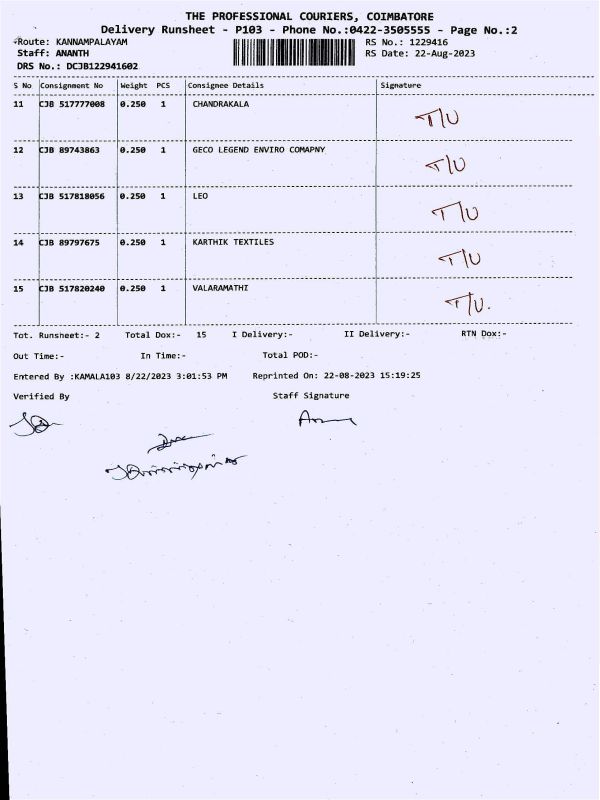 THE PROFESSIONAL COURIERS, COIMBATORE
Delivery Runsheet - P103 - Phone No.:0422-3505555 - Page No.:2
Route: KANNAMPALAYAM RS No.: 1229416
Staff: ANANTH RS Date: 22-Aug-2023
DRS No.: DCJB122941602
S No Consignment No Weight PCS Consignee Details Signature
11 CJB 517777008 0.250 1 CHANDRAKALA T/U
12 CJB 89743863 0.250 1 GECO LEGEND ENVIRO COMAPNY T/U
13 CJB 517818056 0.250 1 LEO T/U
14 CJB 89797675 0.250 1 KARTHIK TEXTILES T/U
15 CJB 517820240 0.250 1 VALARAMATHI T/U.
Tot. Runsheet:- 2 Total Dox:- 15 I Delivery:- II Delivery:- RTN Dox:-
Out Time:- In Time:- Total POD:-
Entered By :KAMALA103 8/22/2023 3:01:53 PM Reprinted On: 22-08-2023 15:19:25
Verified By Staff Signature